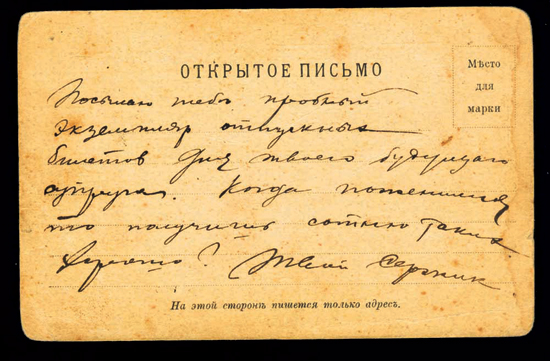 ОТКРЫТОЕ ПИСЬМО
Мѣсто
для
марки
Посылаю тебѣ пробный
экземпляр отпускных
билетов для твоего будущаго
супруга. Когда поженимся
то получишь сотню таких.
Хорошо? Твой
На этой сторонѣ пишется только адресъ.